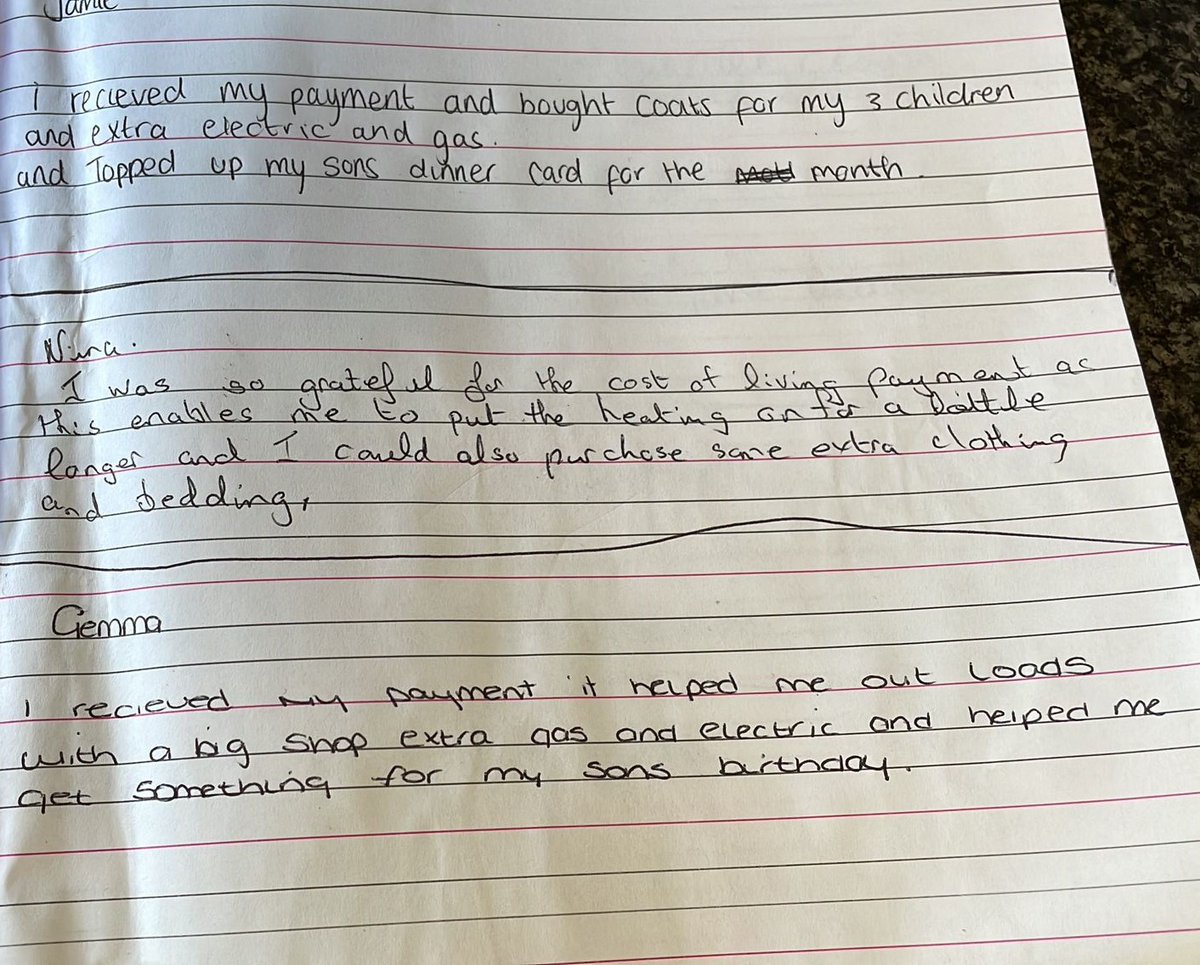 Jamie
i recieved my payment and bought coats for my 3 children
and extra electric and gas.
and Topped up my sons dinner card for the month.
Nina.
I was so grateful for the cost of living payment as
this enables me to put the heating on for a little
longer and I could also purchase some extra clothing
and bedding,
Gemma
I recieved my payment it helped me out loads
with a big shop extra gas and electric and helped me
get something for my sons birthday.